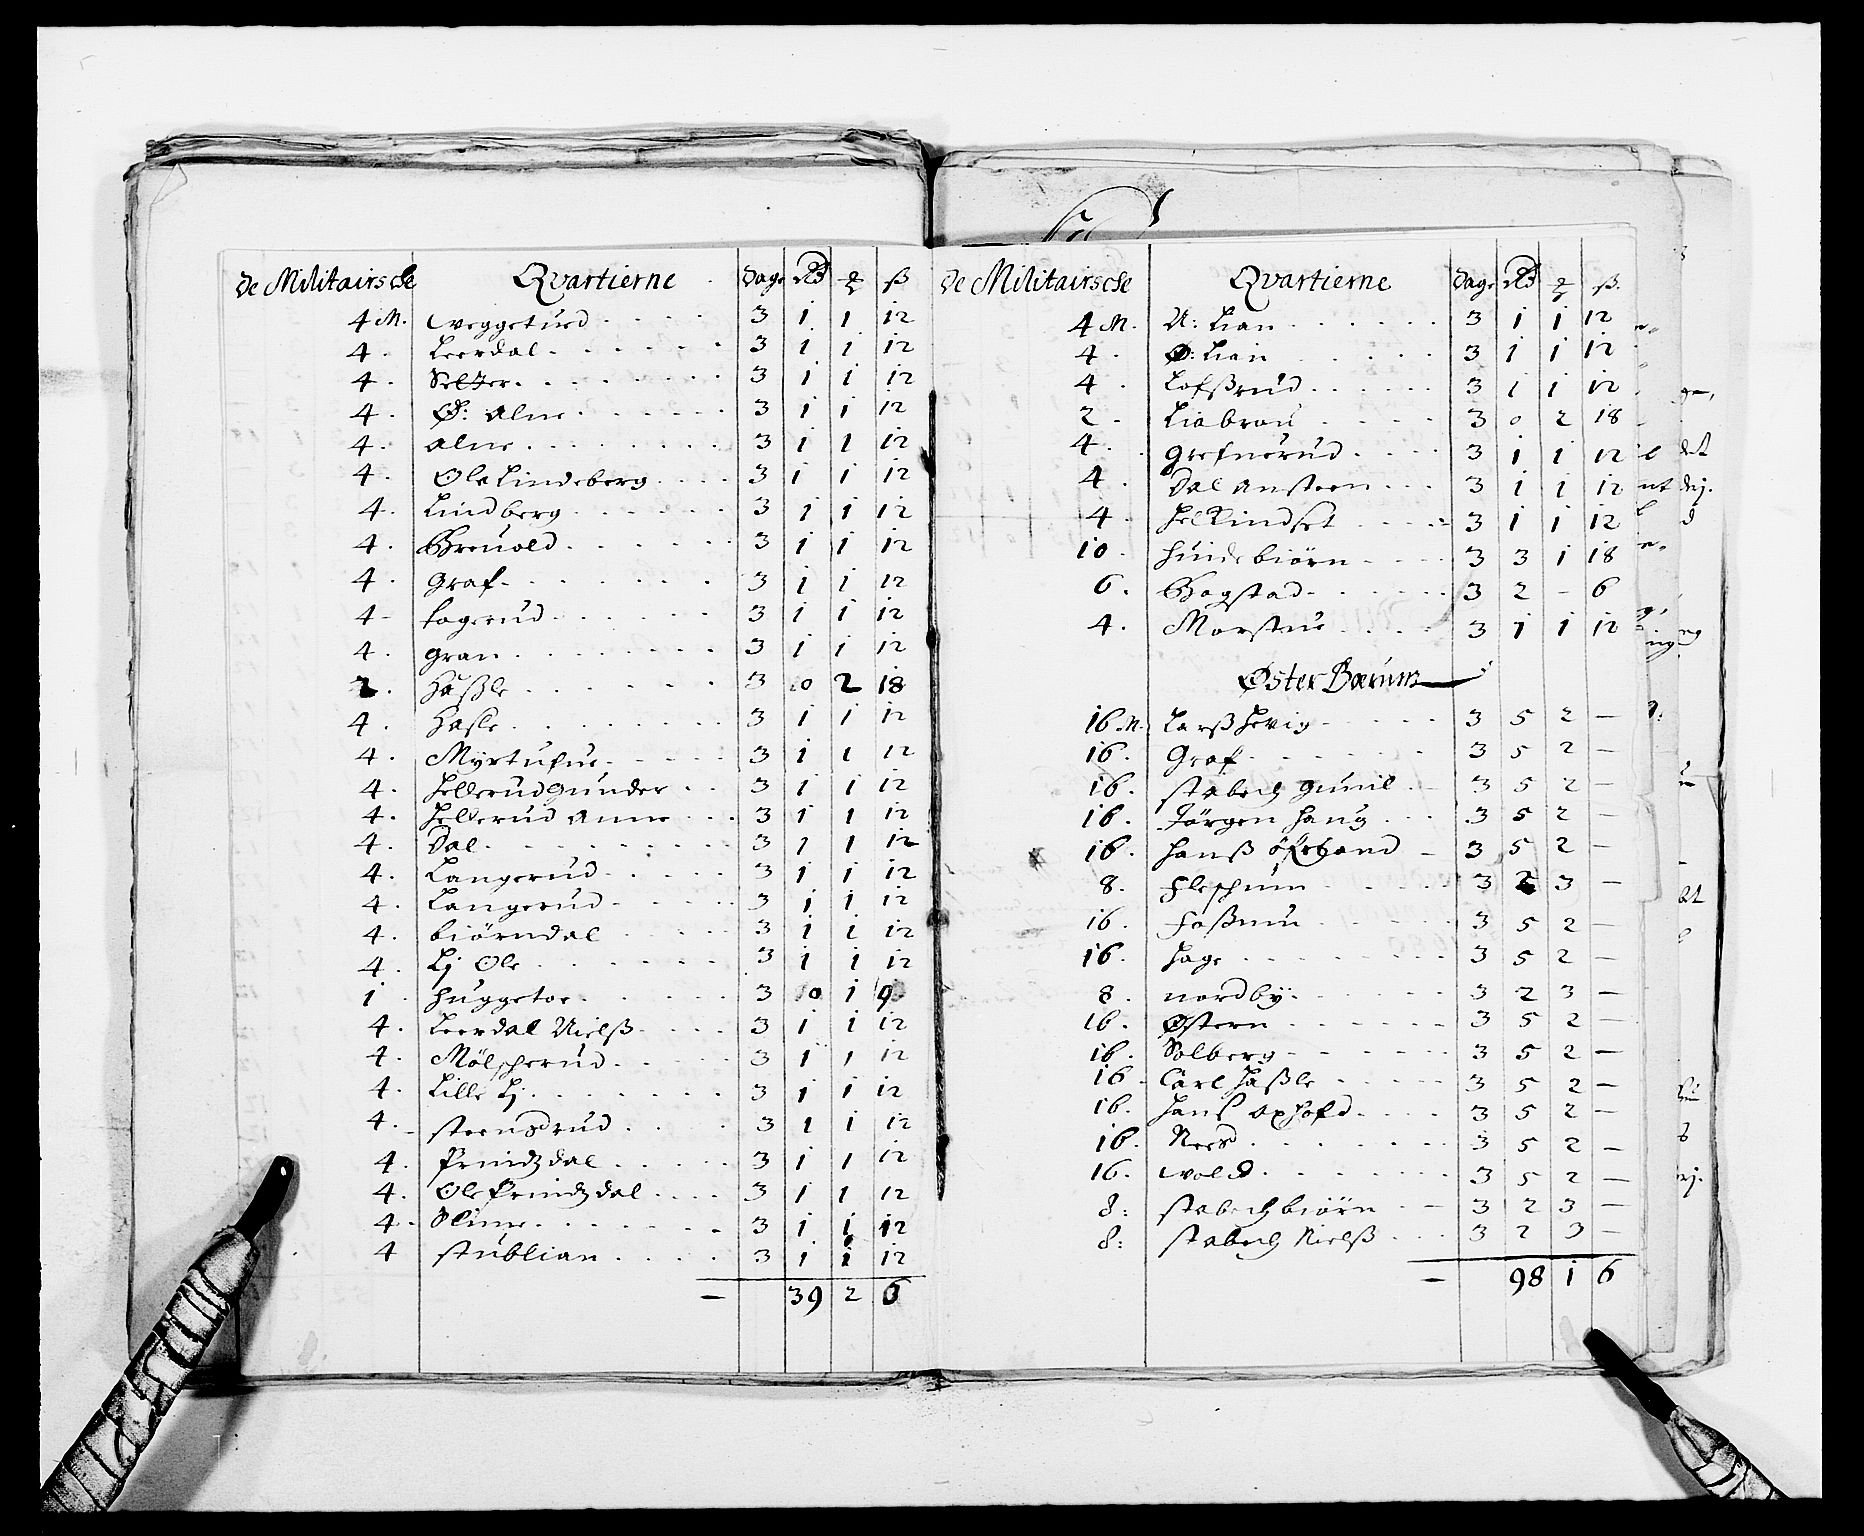 De Militairsche Qvartierne Dage Rd ß
4 M. weggetued 3 1 1 12
4. Leerdal 3 1 1 12
4. Selter 3 1 1 12
4. Ø: Alne 3 1 1 12
4. alne 3 1 1 12
4. Ole Lindeberg 3 1 1 12
4. Lindberg 3 1 1 12
4. Breuold 3 1 1 12
4. Graf 3 1 1 12
4 fagerud 3 1 1 12
4. Gran 3 1 1 12
2. Haßle 3 0 2 18
4. Hasle 3 1 1 12
4. 3 1 1 12
4. Hellerud Gunder 3 1 1 12
4. Hellerud Anne 3 1 1 12
4. Dal 3 1 1 12
4. Langerud 3 1 1 12
4. Langerud 3 1 1 12
4. biörndal 3 1 1 12
4. Lj Ole 3 1 1 12
1 huggetoe 3 0 1 9
4. Leerdal Nielß 3 1 1 12
4. Mölscherud 3 1 1 12
4. Lille Lj 3 1 1 12
4. steensrud 3 1 1 12
4. Prindz dal 3 1 1 12
4. Ole Prindz dal 3 1 1 12
4. Slime 3 1 1 12
4 stubljan 3 1 1 12
39 2 6
De Militairsche Qvartierne Dage Rd ß.
4 M. N: Lian 3 1 1 12
4. Ø: Lian 3 1 1 12
4 Lofßrud 3 1 1 12
2 Liabrau 3 0 2 18
4. Grefnerud 3 1 1 12
4. Dal ansteen 3 1 1 12
4 3 1 1 12
10. hundebiörn 3 3 1 18
6. Bogstad 3 2 - 6
4. Morstue 3 1 1 12
Øster Bærum
16 M. Larß Høvig 3 5 2 —
16. Graf 3 5 2 —
16. stabech Gunil 3 5 2 —
16. Jörgen haug 3 5 2 —
16. Hanß 3 5 2 —
8. Fleschum 3 2 3 —
16. Foßum 3 5 2 —
16. Hage 3 5 2 —
8. nordby 3 2 3 —
16. Østern 3 5 2 —
16. Solberg 3 5 2 —
16 Carl haßle 3 5 2 —
16. Hans 3 5 2 —
16. Nees 3 5 2 —
16. wold 3 5 2 —
8: stabech biörn 3 2 3 —
8: stabech Nielß 3 2 3 —
98 1 6